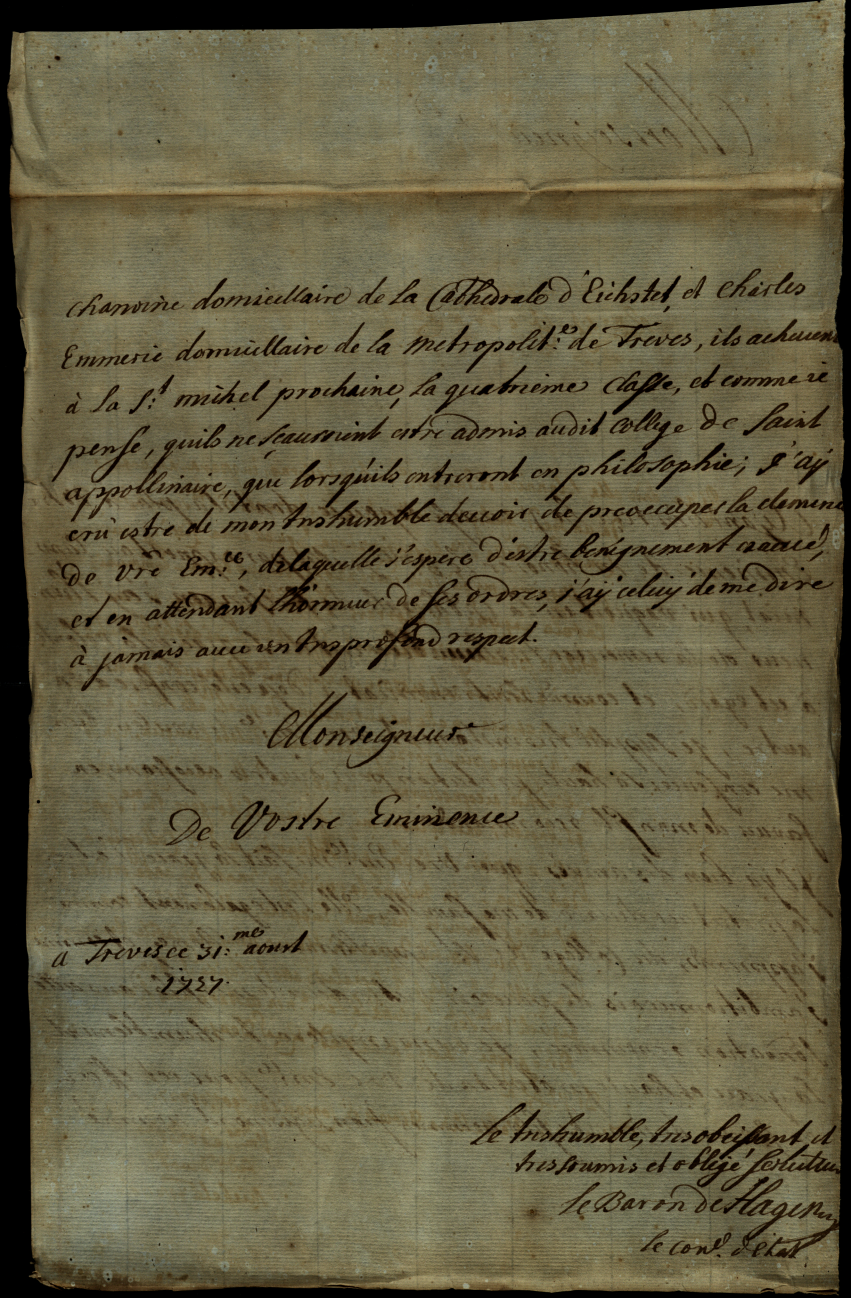 chanoine domicellaire de la Cathedrale d'Eichstet, et Charles
Emmeric domicellaire de la metropolit:e de Treves, ils achevent
à la S:t michel prochaine, la quatrieme Classe, et comme je
pense, quils ne sçauroient estre admis audit College de Saint
appollinaire, que lorsqu'ils entreront en philosophie; J'ay
crû estre de mon treshumble devoir de preoccuper la clemence
de vre Em:ce, de laquelle j'espere d'estre benignement exaucé,
et en attendant l'honneur de ses ordres, j'ay celuy de me dire
à jamais avec un tresprofond respect.
Monseigneur
De Vostre Eminence
a Treves ce 31:me aoust
1727.
le treshumble, tresobeissant et
tressoumis et obligé serviteur
le Baron de Hagen
le cons. d'etat